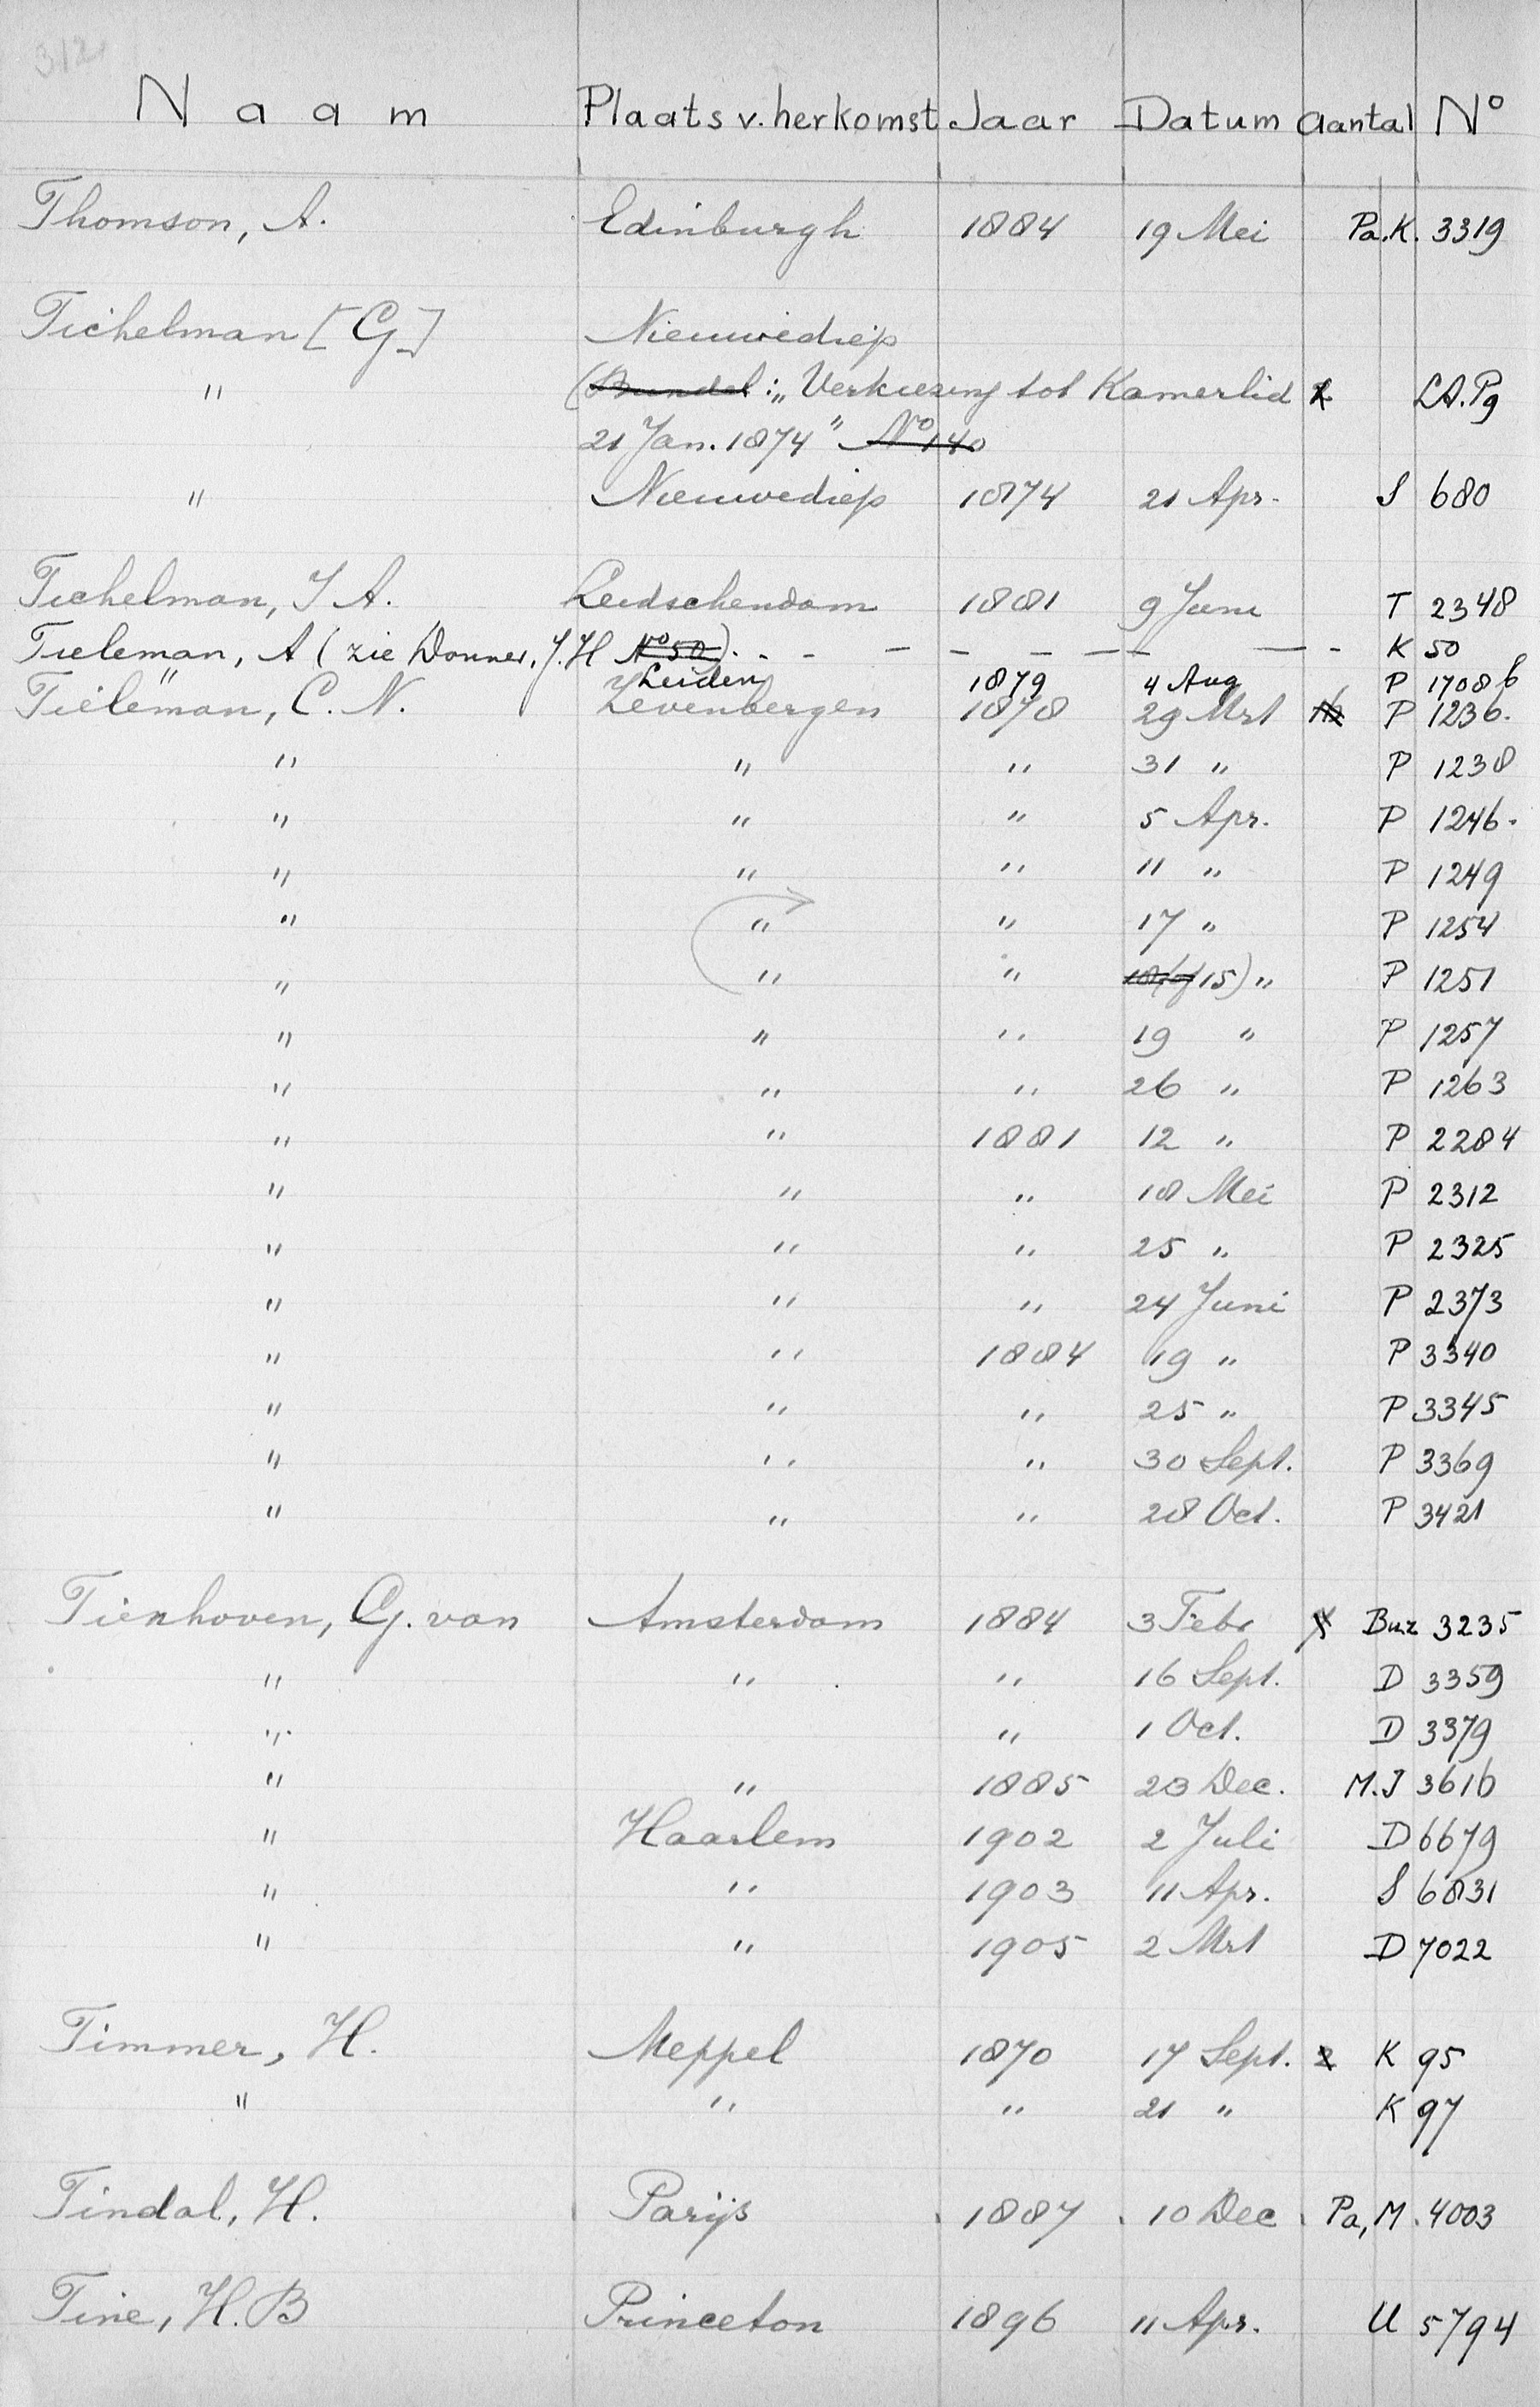 312
Naam Plaats v. herkomst Jaar Datum aantal No
Thomson, A. Edinburgh 1884 19 Mei Pa.K. 3319
Tichelman [G] Nieuwediep
" (Bundel: „Verkiezing tot Kamerlid LA.Pg
21 Jan. 1874" No 140
" Nieuwediep 1874 21 Apr. S 680
Tichelman, J A. Leidschendam 1881 9 Juni T 2348
Tieleman, A (zie Donner, J.H No 50). - - - - - - - K 50
" Leiden 1879 4 Aug P 1708b
Tieleman, C. N. Zevenbergen 1878 29 Mrt P 1236.
" " " 31 " P 1238
" " " 5 Apr. P 1246.
" " " 11 " P 1249
" " " 17 " P 1254
" " " 18 (of 15) " P 1251
" " " 19 " P 1257
" " " 26 " P 1263
" " 1881 12 " P 2284
" " " 18 Mei P 2312
" " " 25 " P 2325
" " " 24 Juni P 2373
" " 1884 19 " P 3340
" " " 25 " P 3345
" " " 30 Sept. P 3369
" " " 28 Oct. P 3421
Tienhoven, G. van Amsterdam 1884 3 Febr Buz 3235
" " " 16 Sept. D 3359
" " 1 Oct. D 3379
" " 1885 23 Dec. M.J 3616
" Haarlem 1902 2 Juli D 6679
" " 1903 11 Apr. S 6831
" " 1905 2 Mrt D 7022
Timmer, H. Meppel 1870 17 Sept. 2 K 95
" " " 21 " K 97
Tindal, H. Parijs 1887 10 Dec Pa, M. 4003
Tine, H. B Princeton 1896 11 Apr. U 5794